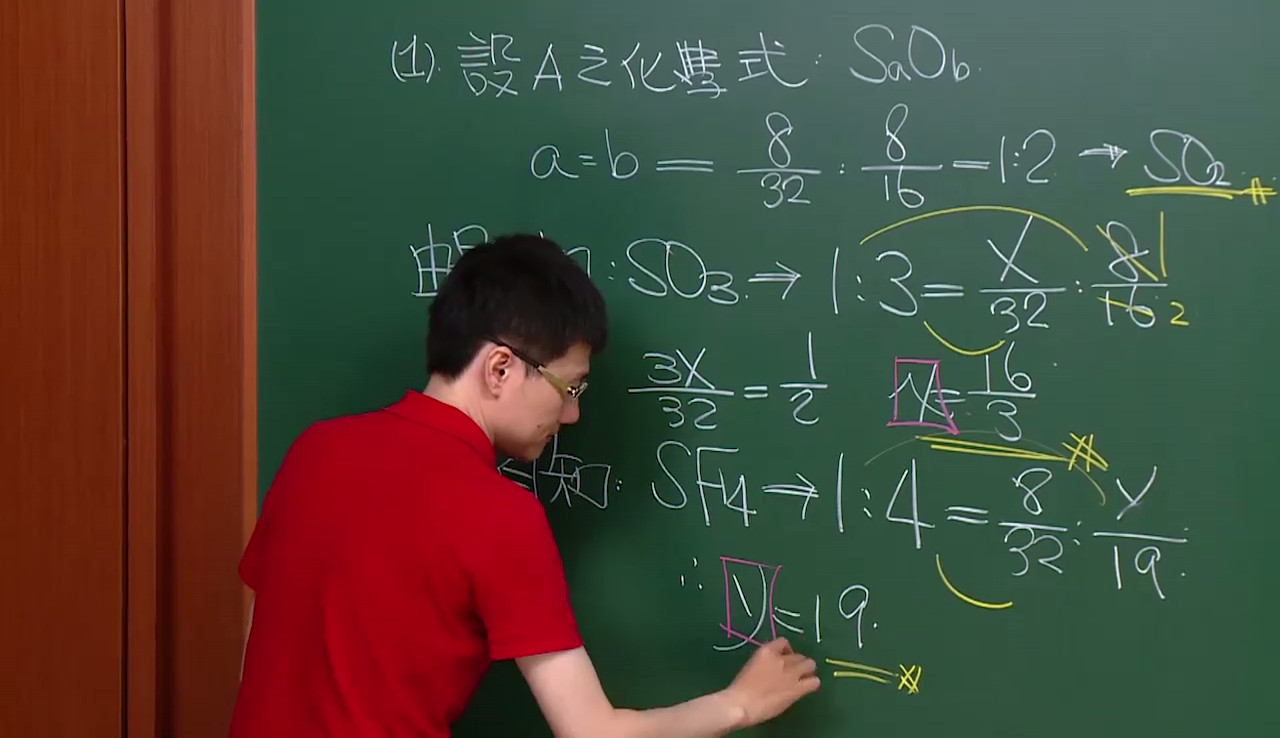 (1). 設A之化學式: SaOb.
a=b = 8/32 : 8/16 = 1:2 → SO2
由 : SO3. → 1:3 = X/32 : 8/16 1 2
3X/32 = 1/2 X = 16/3
知: SF4 → 1:4 = 8/32 : Y/19.
∴ y = 19.